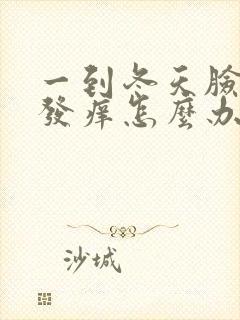 一到冬天臉
發癢怎麼办
沙城